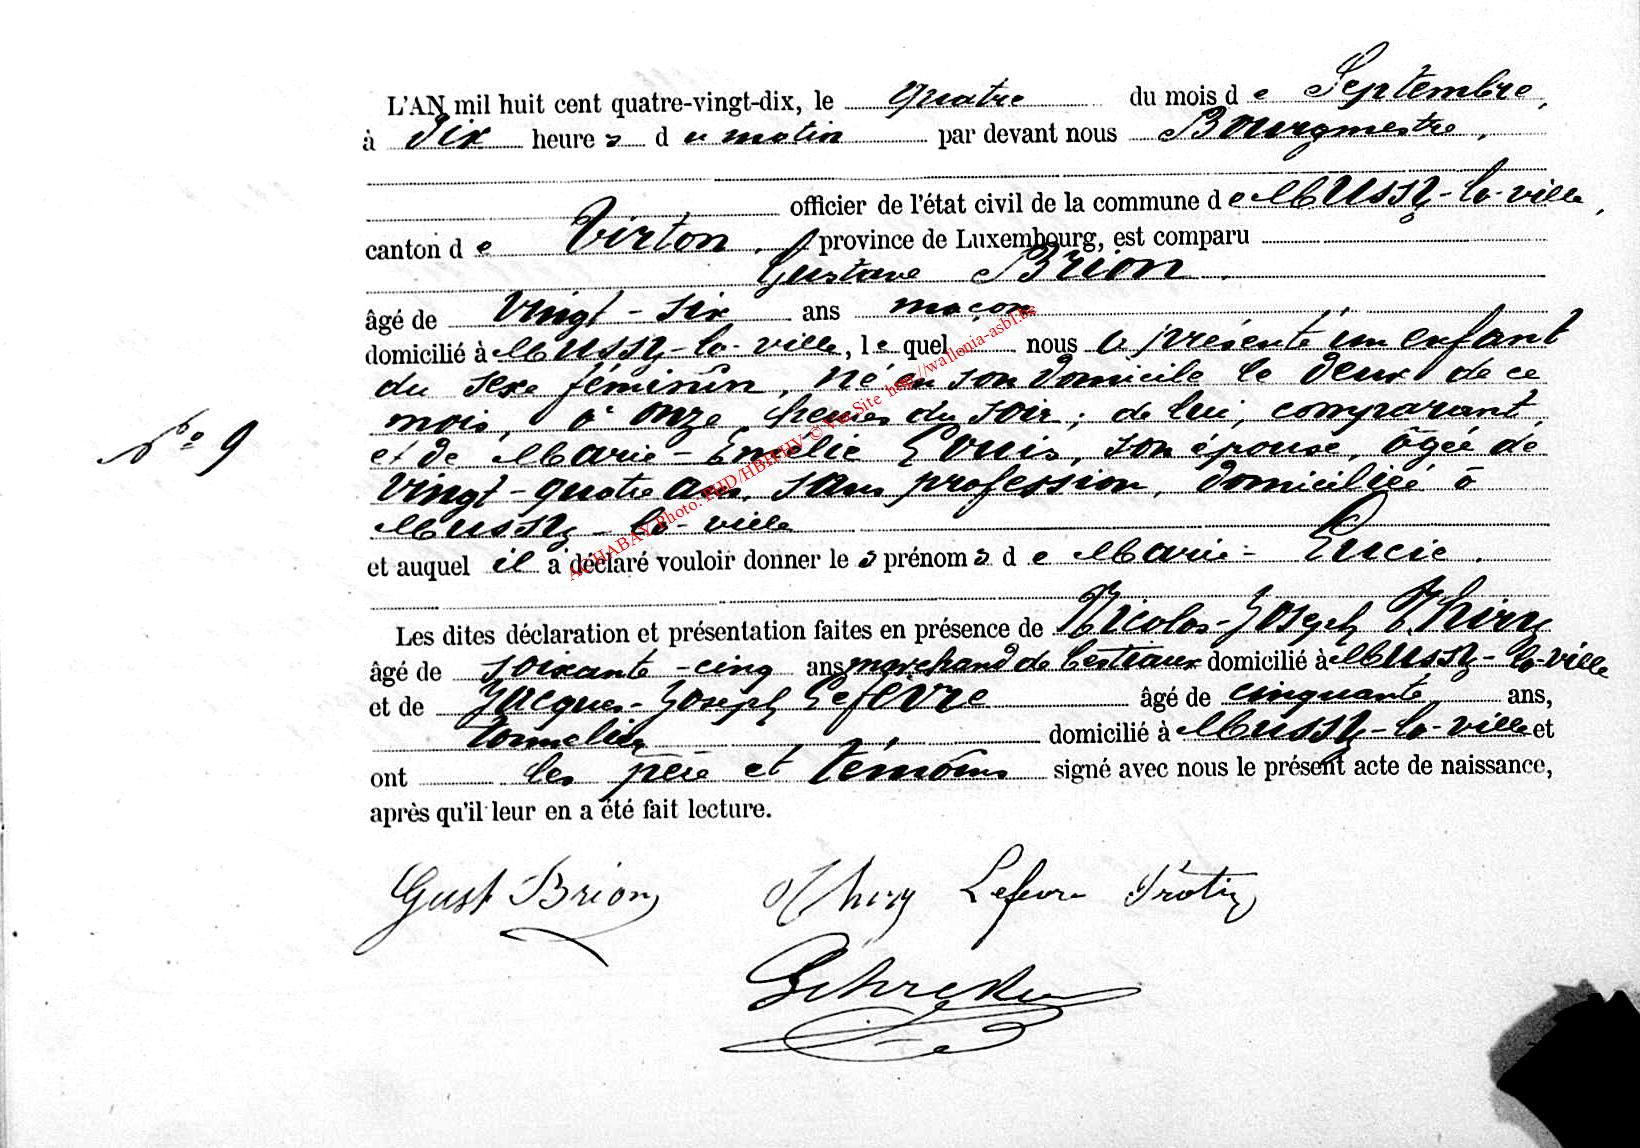 L'AN mil huit cent quatre-vingt-dix, le quatre du mois de Septembre,
à dix heures du matin par devant nous Bourgmestre,
officier de l'état civil de la commune de Mussy-la-ville,
canton de Virton, province de Luxembourg, est comparu
Gustave Brion.
âgé de vingt-six ans maçon
domicilié à Mussy-la-ville, lequel nous a présenté un enfant
du sexe féminin, né en son domicile le deux de ce
mois, à onze heures du soir; de lui, comparant,
N° 9
et de Marie-Emélie Louis, son épouse, âgée de
vingt-quatre ans, sans profession, domiciliée à
Mussy-la-ville
et auquel il a déclaré vouloir donner les prénoms de Marie-Lucie.
Les dites déclaration et présentation faites en présence de Nicolas-Joseph Thiry
âgé de soixante-cinq ans marchand de bestiaux domicilié à Mussy-la-ville
et de Jacques-Joseph Lefèvre âgé de cinquante ans,
tonnelier domicilié à Mussy-la-ville et
ont les père et témoins signé avec nous le présent acte de naissance,
après qu'il leur en a été fait lecture.
Gust Brion Thiry Lefevre
ACHABAY Photo: PHD/HBHTHY © Via Site http://wallonia-asbl.be